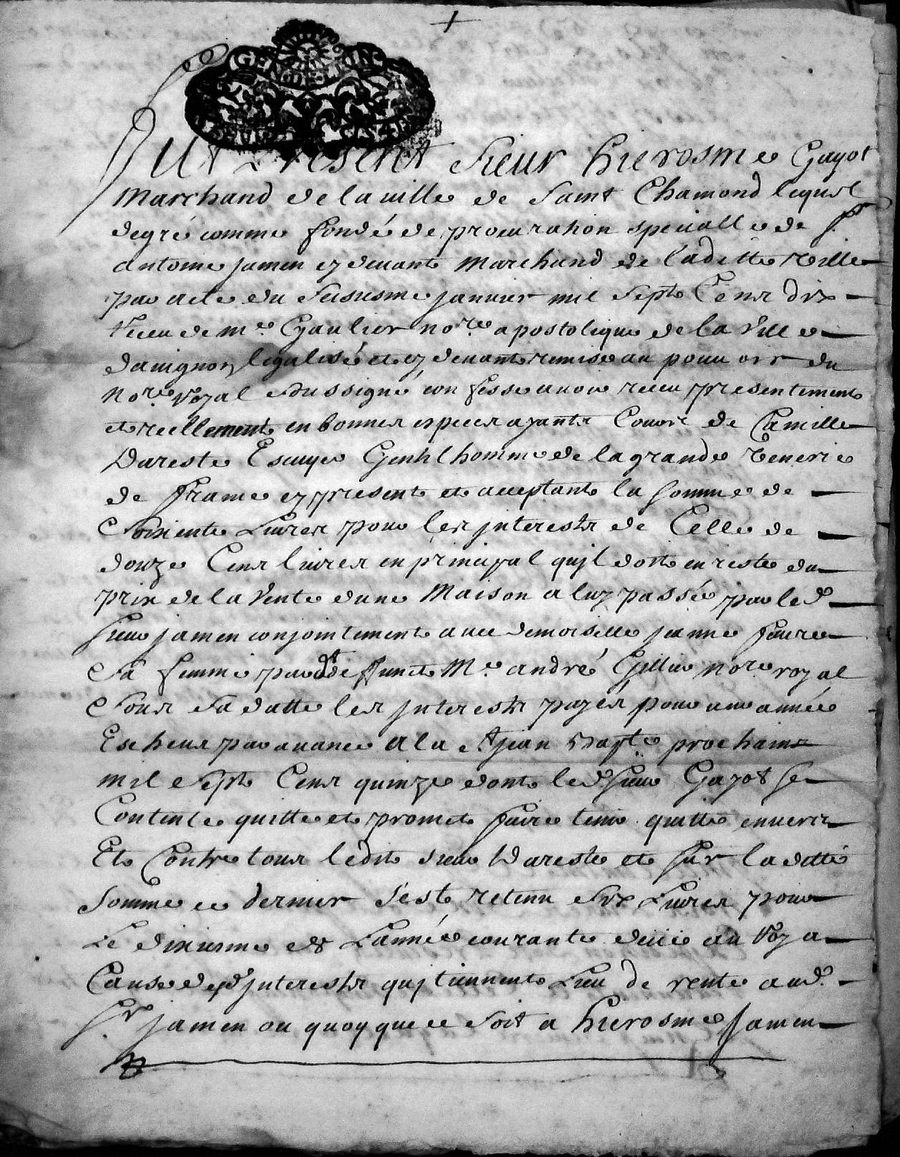 GEN DES
Fut Present Sieur hierosme Gayot
Marchand de la ville de Saint Chamond lequel
degré comme fondé de procuration speciale de Sr
antoine jamen cy devant Marchand de laditte Ville
par acte du Sixiesme janvier mil Sept Cens dix
receu de me Gaulier nore apostolique de la Ville
davignon legalisé et cy devant remise au pouvoir du
nore royal soussigné confesse avoir receu presentement
et reellement en bonnes especes ayants Cours de Camille
Dareste Escuyer Gentilhomme de la grande Venerie
de france cy present et acceptant la somme de
Soixente Livres pour les jnterests de Celle de
douze Cens livres en principal quil doit en reste du
prix de la Vente dune Maison a luy passée par led
sieur jamen conjointement avec demoiselle jeanne faure
Sa femme par deffunct Me andré nore royal
Sous Sa datte les jnterests payés pour une année
Escheus par avance a la St jean Bapte prochain
mil Sept Cens quinze dont led sieur Gayot se
Contente quitte et promet faire tenir quitte envers
Et Contre tous ledit sieur Dareste et sur laditte
Somme ce dernier sest retenu six Livres pour
Le dixiesme de Lannée courante deue au Roy a
Cause desd jnterests qui tiennent Lieu de rente aud
Sr jamen ou quoy que ce soit a hierosme jamen